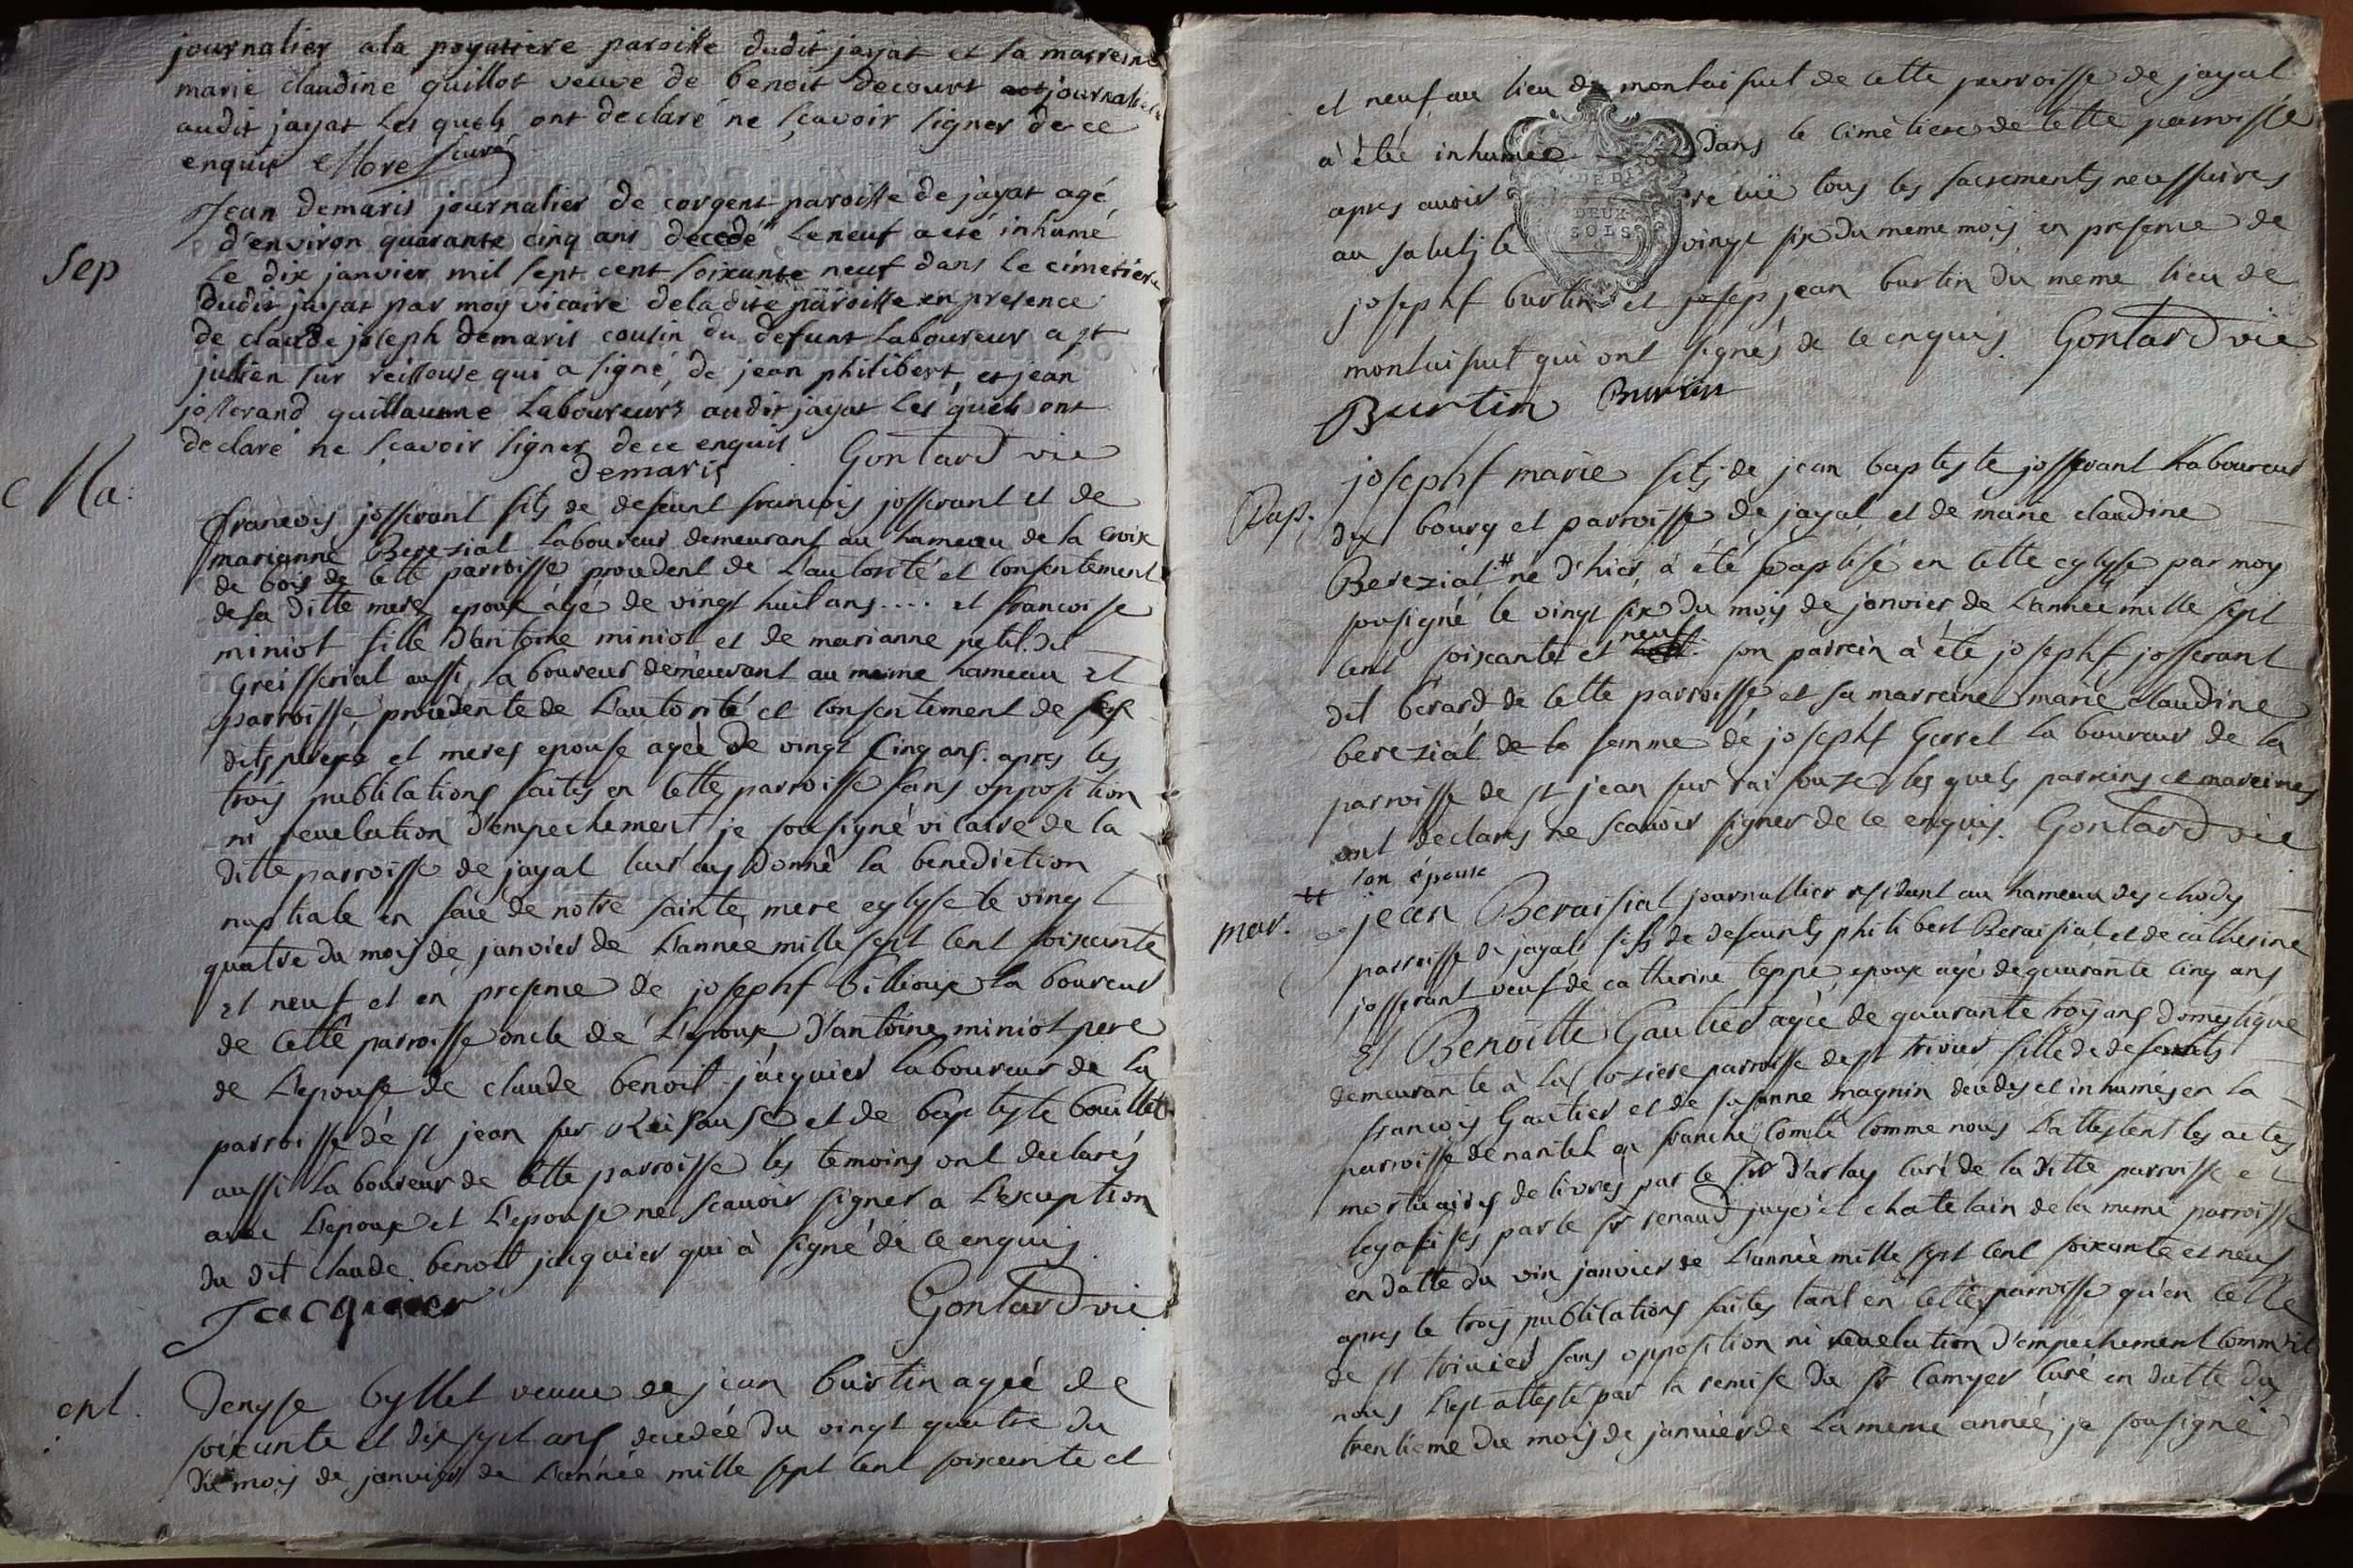 journalier a la poyatiere paroisse dudit jayat et sa marreine
marie claudine guillot veuve de benoit decourt journalier
audit jayat les quels ont declaré ne sçavoir signer de ce
enquis More curé
Sep
Jean demaris journalier de corgent paroisse de jayat agé
d'environ quarante cinq ans decedé le neuf a eté inhumé
le dix janvier mil sept cent soixante neuf dans le cimetiere
dudit jayat par moy vicaire de la dite paroisse en presence
de claude joseph demaris cousin du defunt laboureur a st
julien sur reissouse qui a signé de jean philibert et jean
josserand guillaume laboureurs audit jayat les quels ont
declaré ne sçavoir signer de ce enquis Gontard vic
demaris
Ma:
francois josserant fils de defeunt francois josserant et de
marianne Berezial laboureur demeurant au hameau de la croix
de bois de cette parroisse procedent de l'autorité et consentement
de sa ditte mere epoux agé de vingt huit ans .... et francoise
miniot fille d'antoine miniot et de marianne petit dit
Greisserial aussi laboureur demeurant au meme hameau et
parroisse procedente de l'autorité et consentement de ses
dits peres et meres epouse ageé de vingt cinq ans. apres les
trois publications faites en cette parroisse sans opposition
ni revelation d'empechement je sousigné vicaire de la
ditte parroisse de jayat leur ay donné la benediction
nuptiale en face de notre sainte mere eglysse le vingt
quatre du mois de janvier de l'année mille sept cent soixante
et neuf et en presence de josephf billioux la boureur
de cette parroisse oncle de l'epoux d'antoine miniot pere
de l'epouse de claude benoit jacquier laboureur de la
parroisse de st jean sur Reisouse et de baptyste bouillet
aussi la boureur de cette parroisse les temoins ont declarés
avec l'epoux et l'epouse ne scavoir signer a l'exception
du dit claude benoit jacquier qui à signé de ce enquis.
Jacquier Gontard vic
ent.
denyse byllet veuve de jean burtin ageé de
soixante et dix sept ans decedée du vingt quatre du
du mois de janvier de l'année mille sept cent soixante et
et neuf au lieu de montaisut de cette parroisse de jayat
à été inhumée dans le cimetiere de cette parroisse
apres avoir recuë tous les sacrements necessaires
au salut le vingt six du meme mois en presence de
josephf burtin et josep jean burtin du meme lieu de
montaisut qui ont signés de ce enquis. Gontard vic
Burtin Burtin
DEUX
SOLS
Bap.
josephf marie fils de jean baptyste josserant laboureur
du bourg et parroisse de jayat et de marie claudine
Berezial # né d'hier à été baptisé en cette eglyse par moy
sousigné le vingt six du mois de janvier de l'année mille sept
cent soixante et neuf son parrein à été josephf josserant
dit berard de cette parroisse et sa marreine marie claudine
berezial de la femme de josephf Gerrel la boureur de la
parroisse de st jean sur raisouze les quels parreins et mareines
ont declarés ne scavoir signer de ce enquis. Gontard vic
# son épouse
mar.
jean Beraisial journallier residant au hameau des chods
parroisse de jayat fils de defeunts philibert Beraisial et de catherine
josserant veuf de catherine teppe, epoux agé de quarante cinq ans
Et Benoitte Gautier ageé de quarante trois ans domestique
demeurante à la loziere parroisse de st trivier fille de defeunts
francois Gautier et de susanne magnin decedes et inhumés en la
parroisse de nantel en franche comté comme nous l'attestent les actes
mortuaires delivrés par le sr d'arlay curé de la ditte parroisse et
legalisés par le sr renaud juge et chatelain de la meme parroisse
en datte du vin janvier de l'année mille sept cent soixante et neuf
apres le trois publications faites tant en cette parroisse qu'en celle
de st trivier sans opposition ni revelation d'empechement comme il
nous l'est attesté par la remise du sr Camyer curé en datte du
trentieme du mois de janvier de la meme année, je sousigné